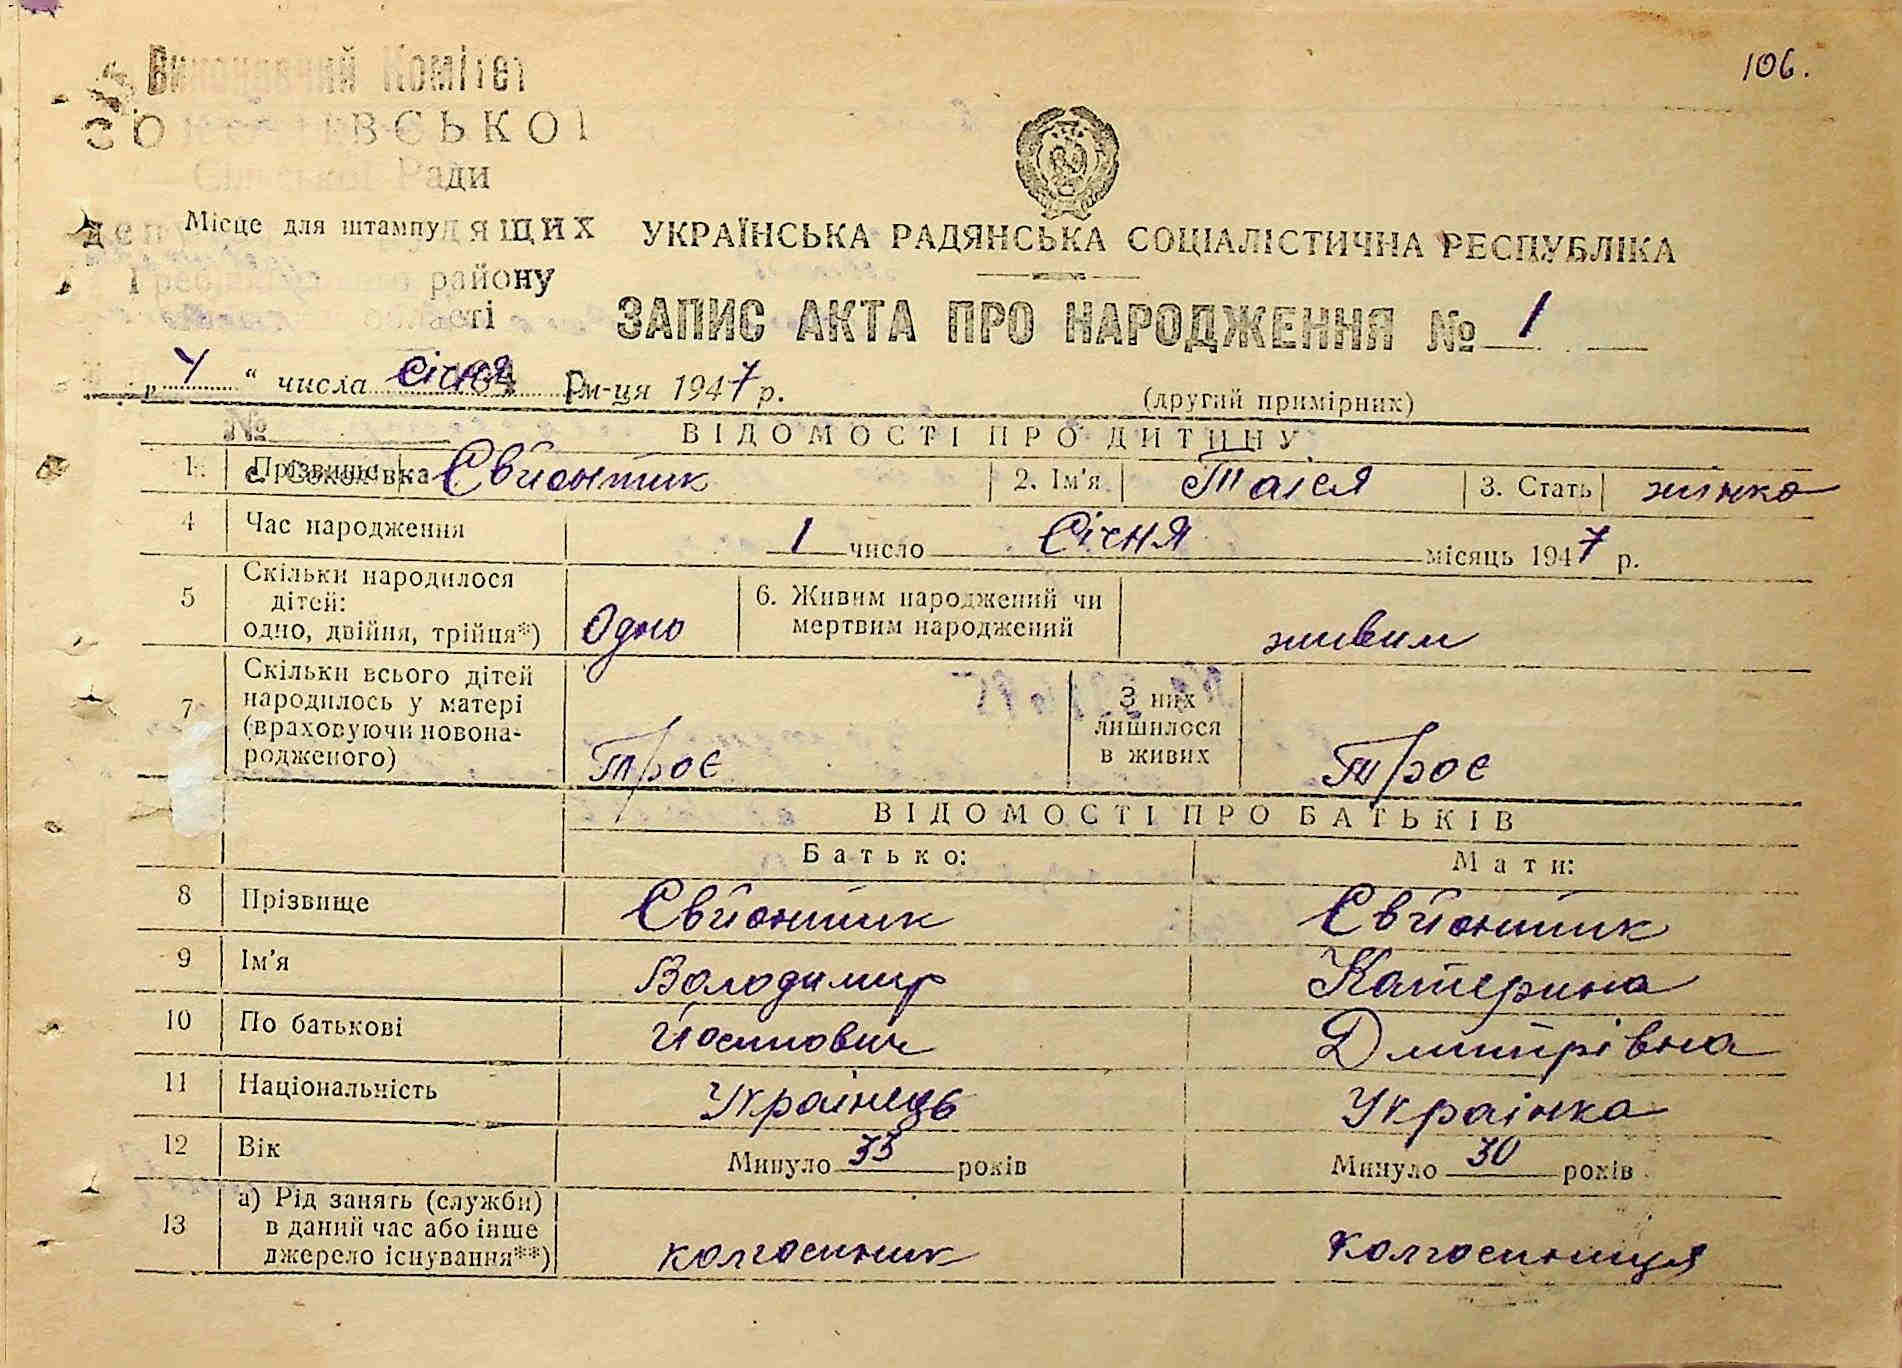 106.
Виконавчий Комітет
ВСЬКОЇ
Сільської Ради
Місце для штампу ДЯЩИХ
району
області
УКРАЇНСЬКА РАДЯНСЬКА СОЦІАЛІСТИЧНА РЕСПУБЛІКА
ЗАПИС АКТА ПРО НАРОДЖЕННЯ № 1
" 4 " числа січня м-ця 1947 р.
(другий примірник)
№
ВІДОМОСТІ ПРО ДИТИНУ
1. Прізвище Євйонтик 2. Ім'я Таїся 3. Стать жінка
с. Соколівка
4 Час народження 1 число Січня місяць 1947 р.
5 Скільки народилося дітей: одно, двійня, трійня*) Одно 6. Живим народжений чи мертвим народжений живим
7 Скільки всього дітей народилось у матері (враховуючи новонародженого) Троє З них лишилося в живих Троє
ВІДОМОСТІ ПРО БАТЬКІВ
Батько: Мати:
8 Прізвище Євйонтик Євйонтик
9 Ім'я Володимир Катерина
10 По батькові Йосипович Дмитрівна
11 Національність Українець Українка
12 Вік Минуло 33 років Минуло 30 років
13 а) Рід занять (служби) в даний час або інше джерело існування**) колгоспник колгоспниця